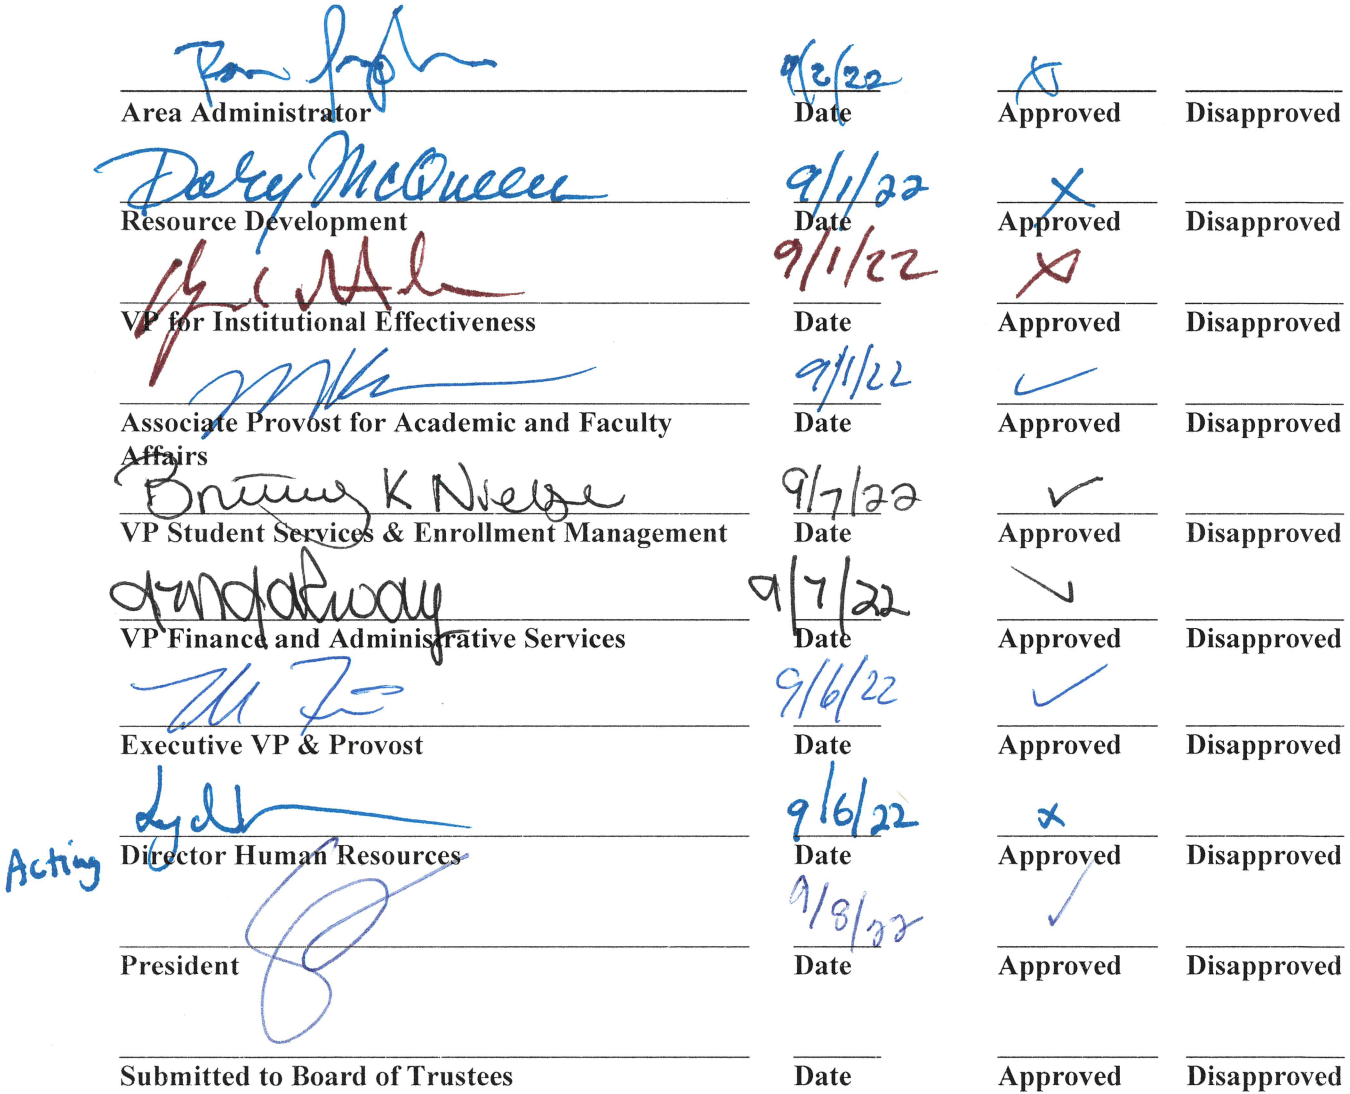 9/2/22 X
Area Administrator Date Approved Disapproved
Dary McQueen 9/1/22 X
Resource Development Date Approved Disapproved
9/1/22 X
VP for Institutional Effectiveness Date Approved Disapproved
9/1/22 ✓
Associate Provost for Academic and Faculty Date Approved Disapproved
Affairs
K 9/7/22 ✓
VP Student Services & Enrollment Management Date Approved Disapproved
9/7/22 ✓
VP Finance and Administrative Services Date Approved Disapproved
9/6/22 ✓
Executive VP & Provost Date Approved Disapproved
9/6/22 x
Acting Director Human Resources Date Approved Disapproved
9/8/22 ✓
President Date Approved Disapproved
Submitted to Board of Trustees Date Approved Disapproved